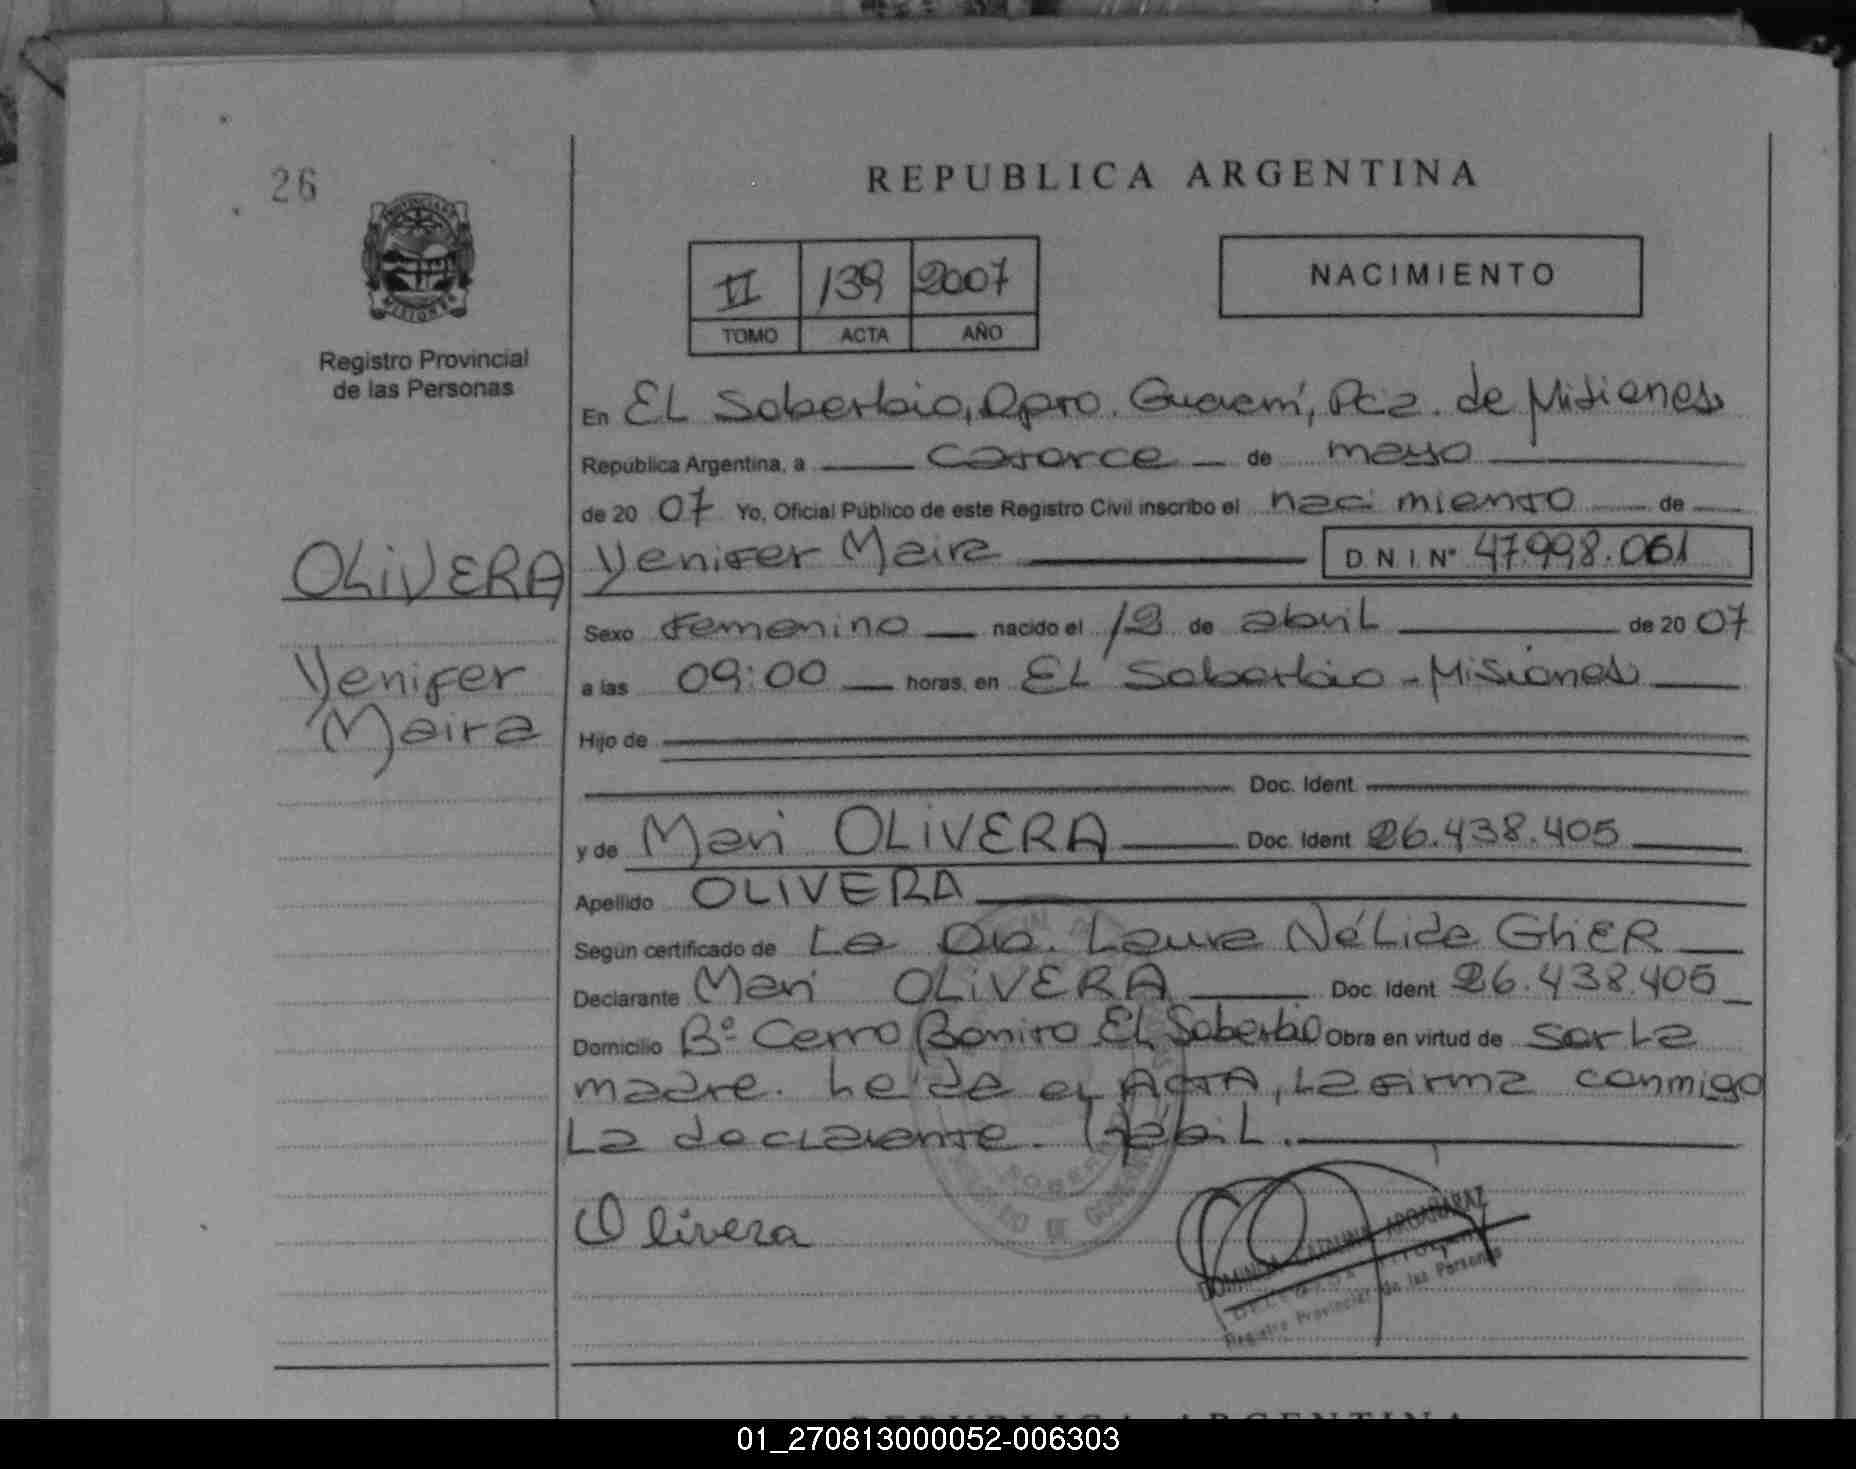 26
REPUBLICA ARGENTINA
PROVINCIA DE
MISIONES
Registro Provincial
de las Personas
II 139 2007
TOMO ACTA AÑO
NACIMIENTO
En El Soberbio, Dpto. Guaraní, Pcia. de Misiones
República Argentina, a catorce de mayo
de 20 07 Yo, Oficial Público de este Registro Civil inscribo el nacimiento de
OLIVERA Yenifer Maira D.N.I. Nº 47.998.061
Sexo Femenino nacido el de abril de 20 07
Yenifer
Maira
a las 09:00 horas, en El Soberbio - Misiones
Hijo de
Doc. Ident.
y de Mari OLIVERA Doc. Ident. 26.438.405
Apellido OLIVERA
Según certificado de La Dra. Laura Nélida GhER
Declarante Mari OLIVERA Doc. Ident. 26.438.405
Domicilio Bº Cerro Bonito El Soberbio Obra en virtud de ser la
madre. Leída el ACTA, la firma conmigo
la declarante. Hábil.
Olivera
DOMINGA CATALINA ARGAÑARAZ
Registro Provincial de las Personas
REPUBLICA ARGENTINA
01_270813000052-006303